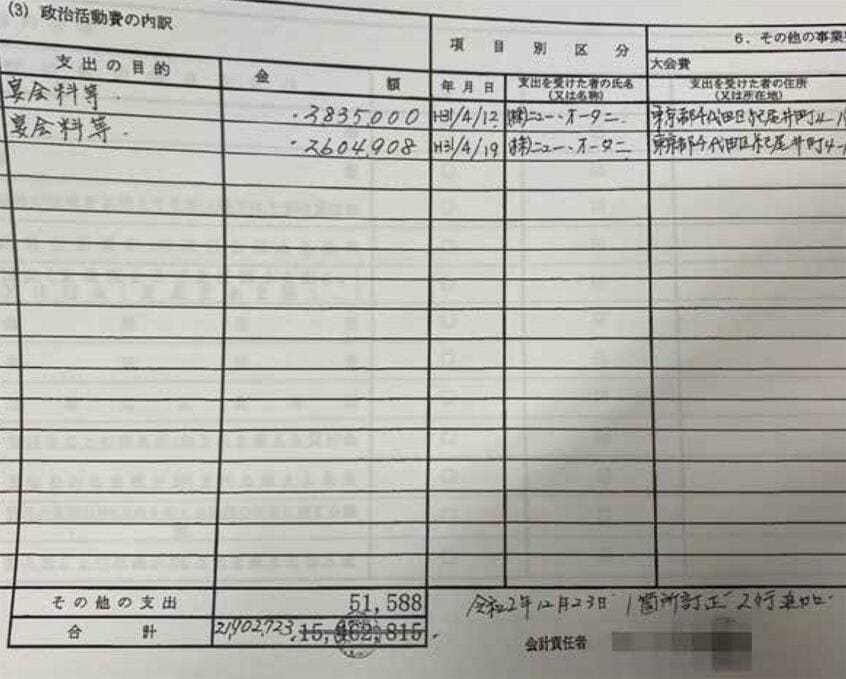 (3) 政治活動費の内訳
項目別区分
6. その他の事業
大会費
支出の目的
金額
年月日
支出を受けた者の氏名
(又は名称)
支出を受けた者の住所
(又は所在地)
宴会料等. 3835000 H31/4/12 (株)ニュー・オータニ 東京都千代田区紀尾井町4-1
宴会料等. 2604,908 H31/4/19 (株)ニュー・オータニ 東京都千代田区紀尾井町4-
その他の支出 51,588
令和2年12月23日 1箇所訂正 2行追加
合計 21,902,723 15,462,815
会計責任者